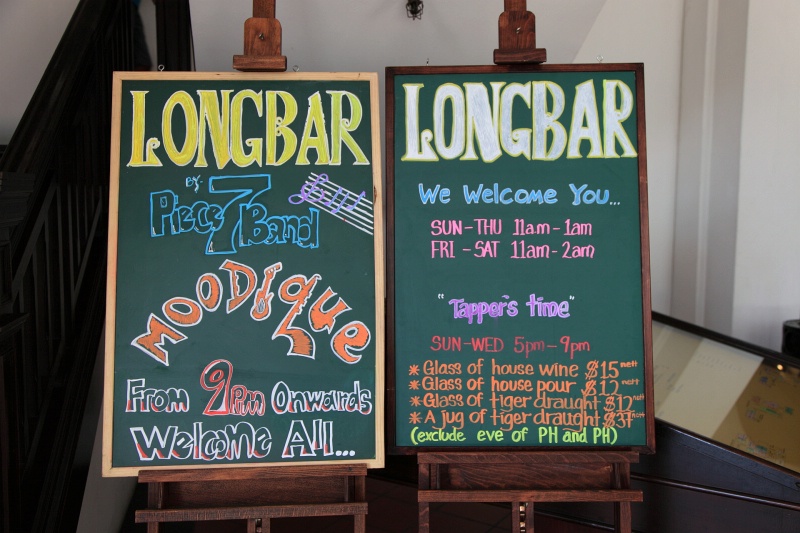 LONGBAR
BY
Piece 7 Band
MOODique
From 9pm Onwards
Welcome All...
LONGBAR
We Welcome You...
SUN-THU 11am-1am
FRI-SAT 11am-2am
"Tapper's time"
SUN-WED 5pm-9pm
* Glass of house wine $15 nett
* Glass of house pour $12 nett
* Glass of tiger draught $12 nett
* A jug of tiger draught $37 nett
(exclude eve of PH and PH)